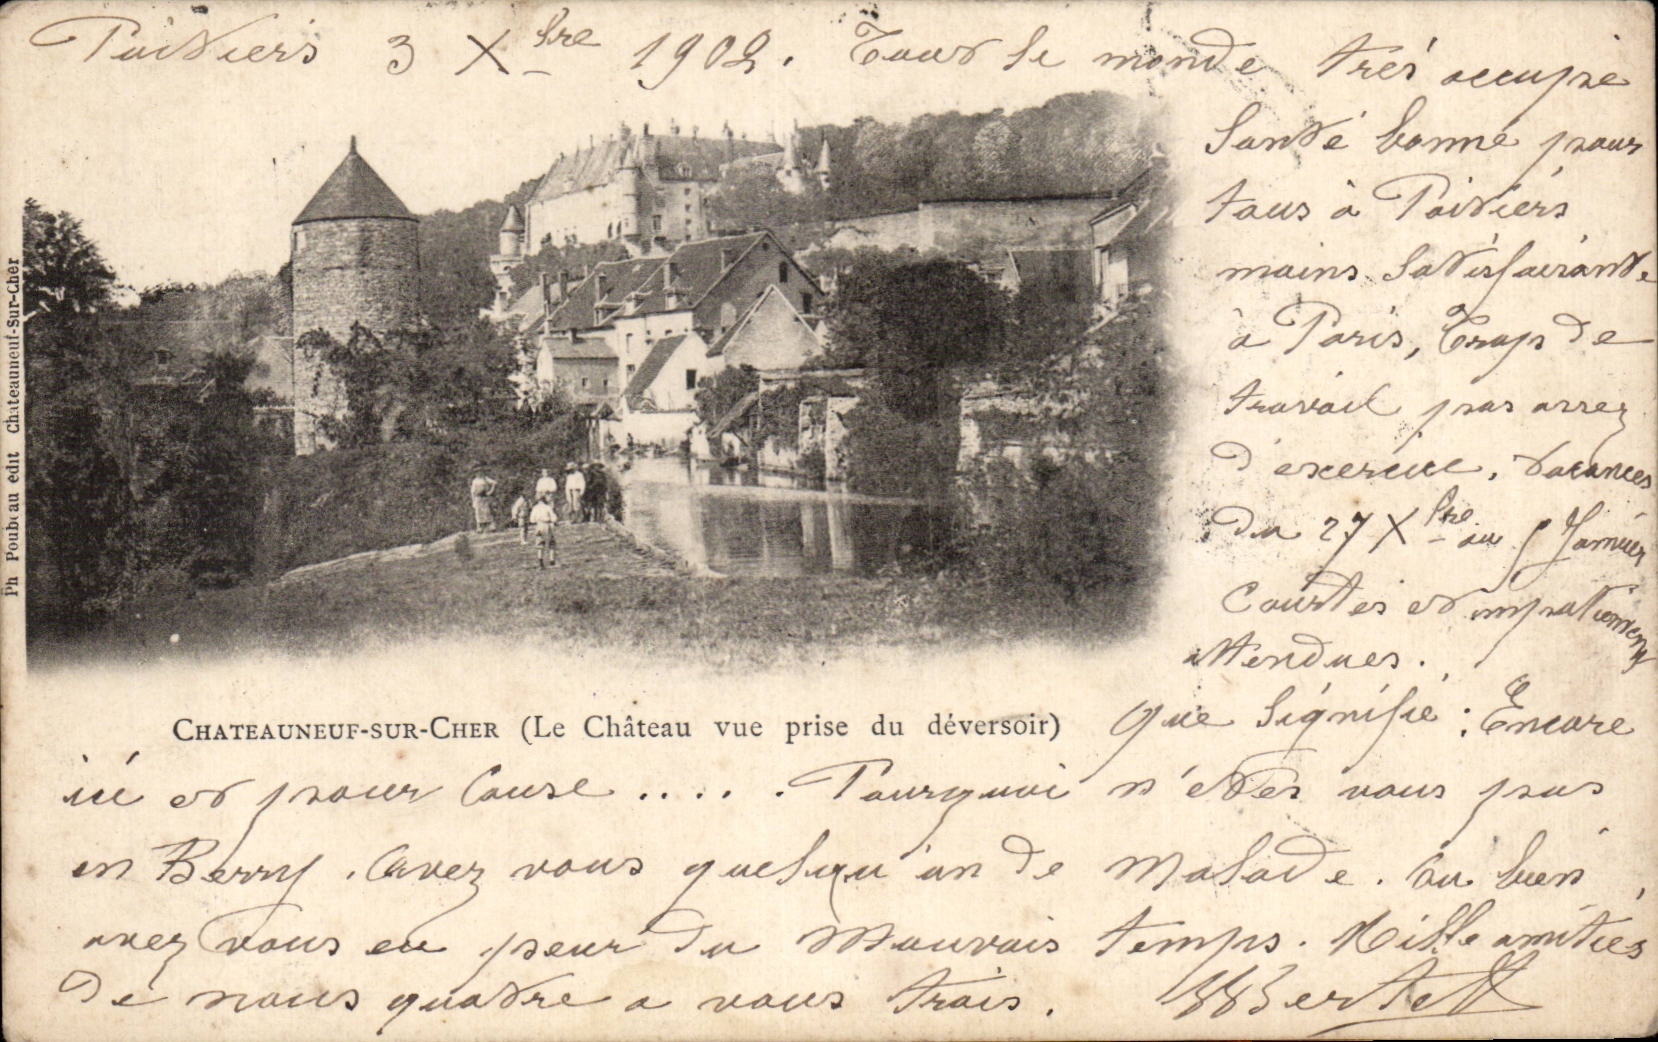 Poitiers 3 Xbre 1902. Tout le monde très occupé
Santé bonne pour
tous à Poitiers
moins satisfaisante
à Paris, Trop de
travail pas assez
d'exercice. Vacances
du 27 Xbre au 5 Janvier
Courtes et impatiemment
attendues.
Que signifie : Encore
ici et pour cause ..... Pourquoi n'etes vous pas
en Berry. Avez vous quelqu'un de malade. Ou bien
avez vous eu peur du mauvais temps. Mille amitiés
de nous quatre a vous trois.
CHATEAUNEUF-SUR-CHER (Le Château vue prise du déversoir)
Ph Poubeau edit Chateauneuf-Sur-Cher